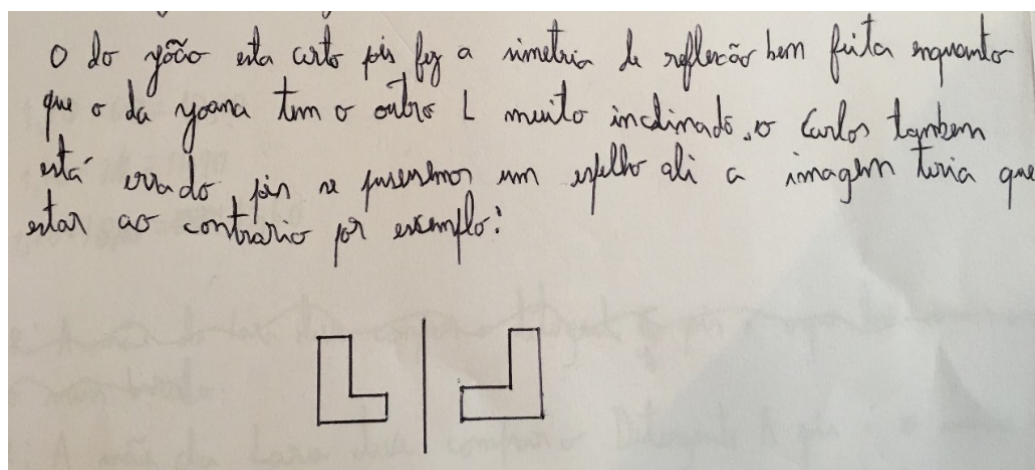 O do yoão esta certo pois fez a simetria de reflecão bem feita enquanto
que o da yoana tem o outro L muito inclinado, o Carlos tambem
está errado pois se pusesemos um espelho ali a imagem teria que
estar ao contrario por exemplo: